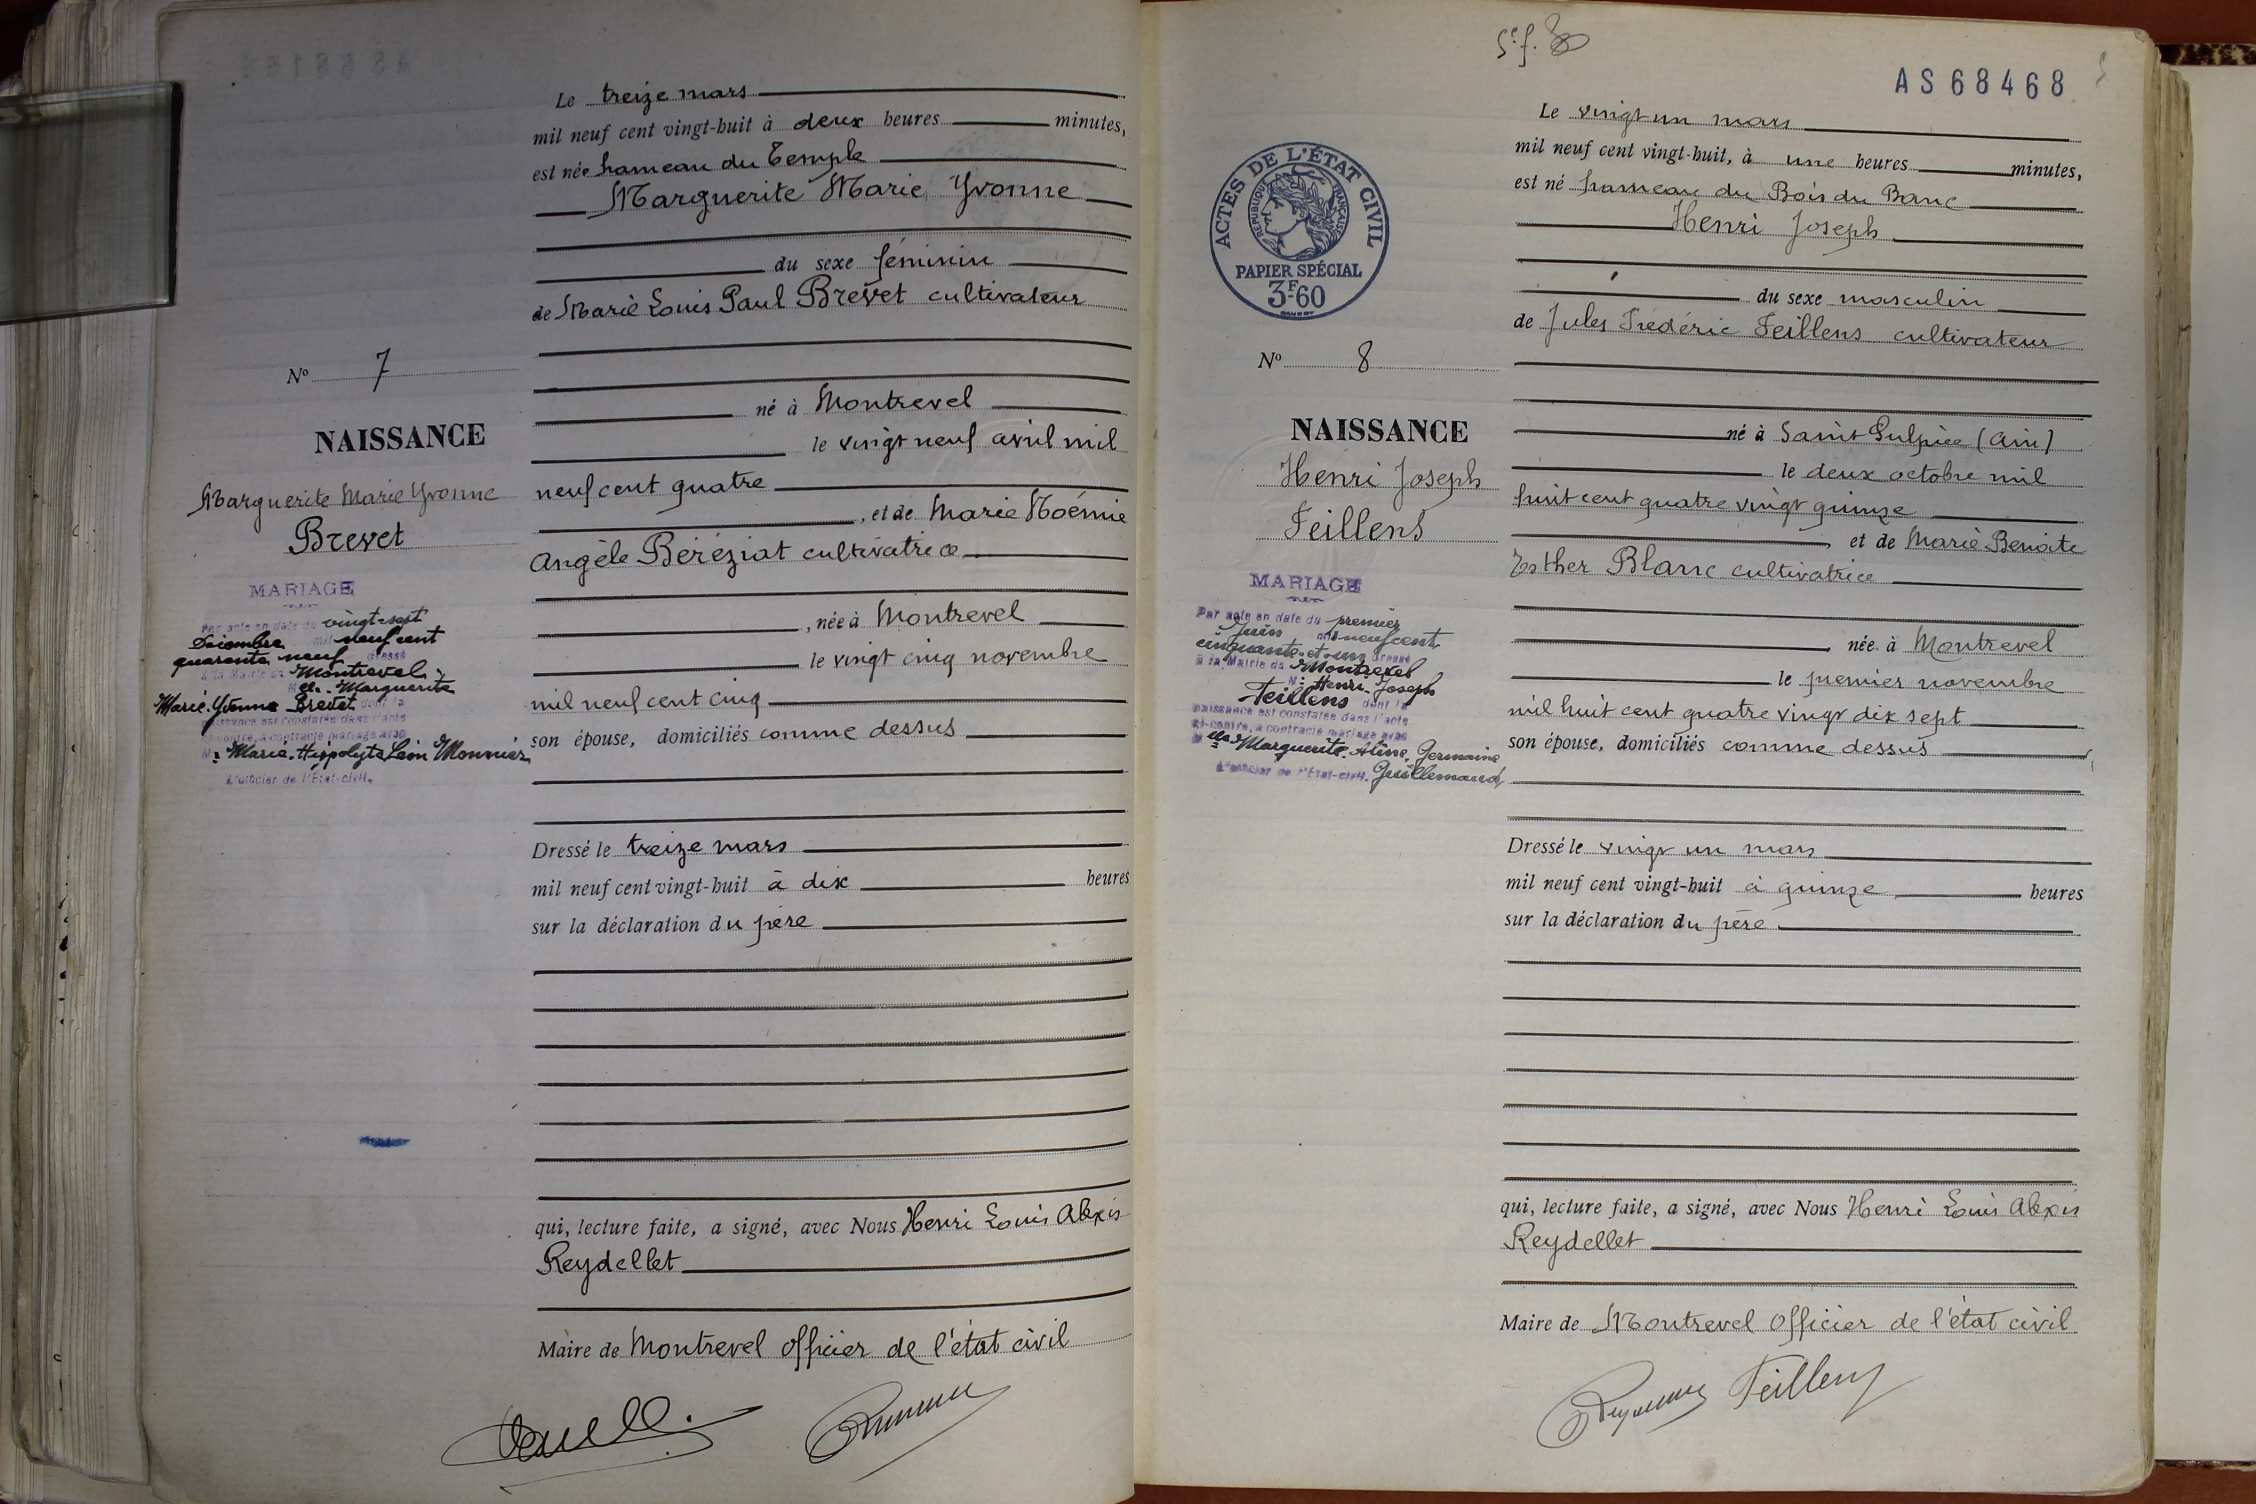 Le treize mars
mil neuf cent vingt-huit à deux heures minutes,
est née hameau du Temple
Marguerite Marie Yvonne
du sexe féminin
de Marie Louis Paul Brevet cultivateur
né à Montrevel
le vingt neuf avril mil
neuf cent quatre
, et de Marie Noémie
Angèle Béréziat cultivatrice
, née à Montrevel
le vingt cinq novembre
mil neuf cent cinq
son épouse, domiciliés comme dessus
Dressé le treize mars
mil neuf cent vingt-huit à dix heures
sur la déclaration du père
qui, lecture faite, a signé, avec Nous Henri Louis Alexis
Reydellet
Maire de Montrevel officier de l'état civil
No 7
NAISSANCE
Marguerite Marie Yvonne
Brevet
MARIAGE
Par acte en date du vingt-sept
Décembre mil neuf cent
quarante neuf dressé
à la Mairie de Montrevel,
Melle Marguerite
Marie Yvonne Brevet dont la
naissance est constatée dans l'acte
ci-contre, a contracté mariage avec
M. Marie Hippolyte Léon Monnier
L'Officier de l'État-civil.
AS 68468
Le vingt un mars
mil neuf cent vingt-huit, à une heures minutes,
est né hameau du Bois du Banc
Henri Joseph
du sexe masculin
de Jules Frédéric Feillens cultivateur
né à Saint Sulpice (Ain)
le deux octobre mil
huit cent quatre vingt quinze
et de Marie Benoite
Esther Blanc cultivatrice
née à Montrevel
le premier novembre
mil huit cent quatre vingt dix sept
son épouse, domiciliés comme dessus
Dressé le vingt un mars
mil neuf cent vingt-huit à quinze heures
sur la déclaration du père
qui, lecture faite, a signé, avec Nous Henri Louis Alexis
Reydellet
Maire de Montrevel Officier de l'état civil
Feillens
ACTES DE L'ÉTAT CIVIL
RÉPUBLIQUE FRANÇAISE
PAPIER SPÉCIAL
3F60
No 8
NAISSANCE
Henri Joseph
Feillens
MARIAGE
Par acte en date du premier
Juin mil neuf cent
cinquante-et-un dressé
à la Mairie de Montrevel
M. Henri Joseph
Feillens dont la
naissance est constatée dans l'acte
ci-contre, a contracté mariage avec
Melle Marguerite Aline Germaine
L'Officier de l'État-civil. Guillemaud,